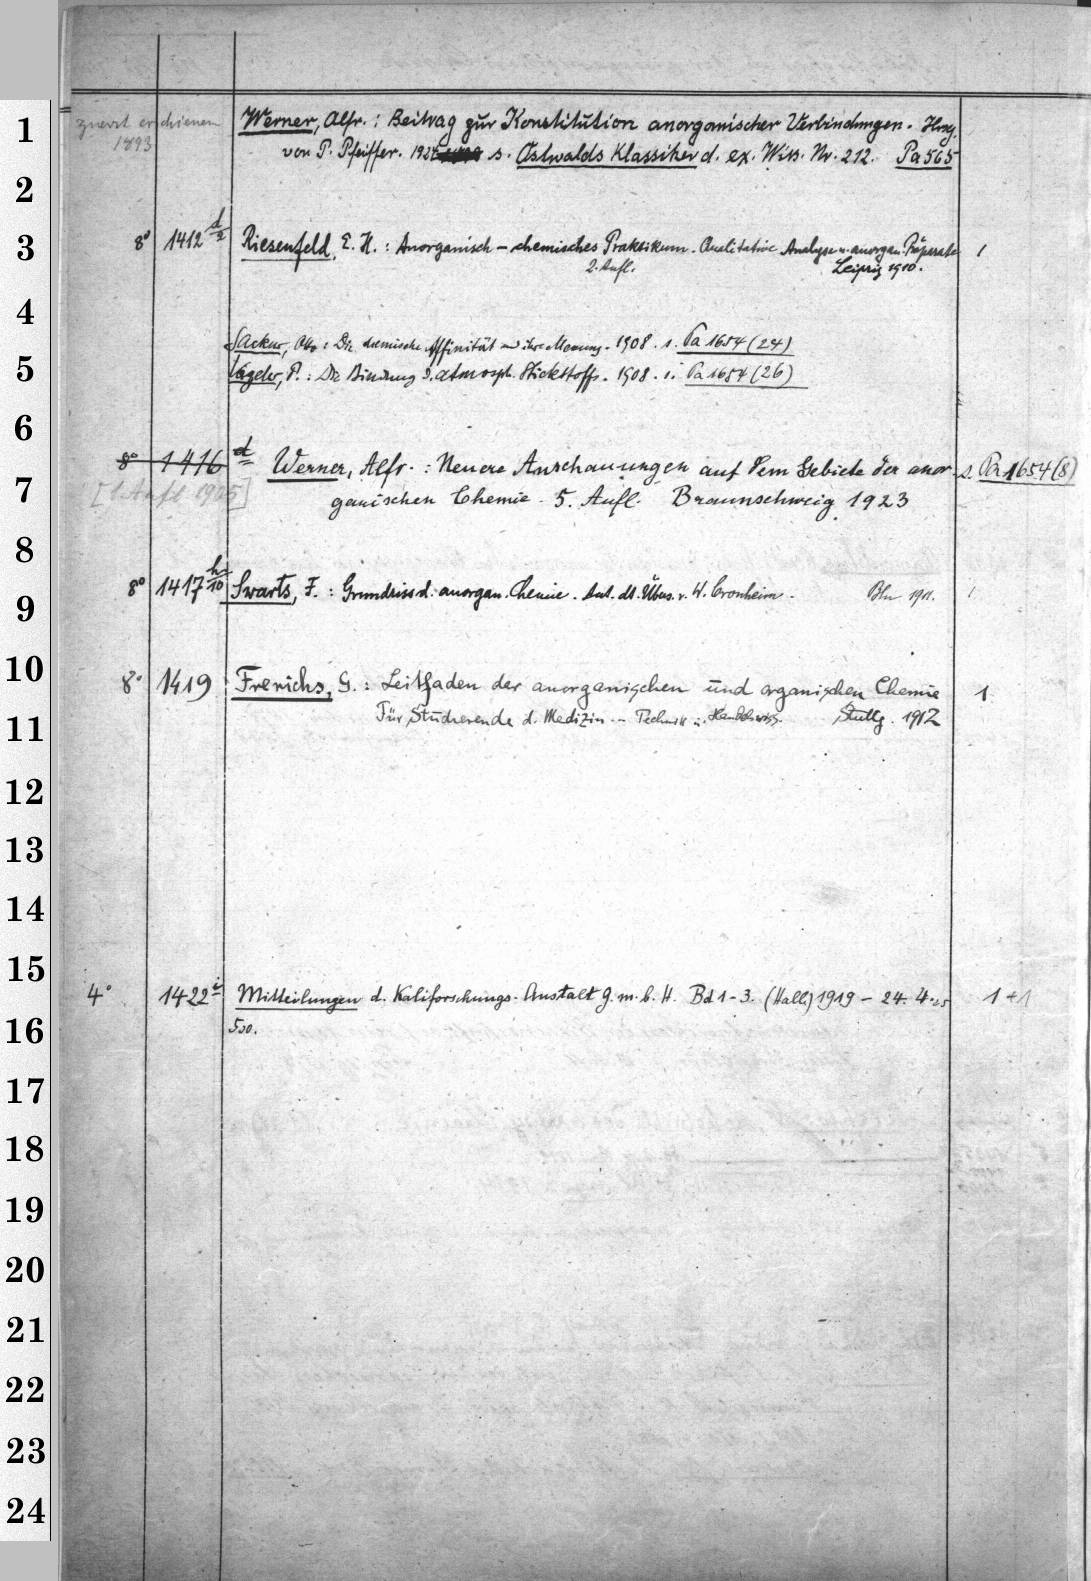 1
2
3
4
5
6
7
8
9
10
11
12
13
14
15
16
17
18
19
20
21
22
23
24
zuerst erschienen
1893
Werner, Alfr.: Beitrag zur Konstitution anorganischer Verbindungen. Hrsg.
von P. Pfeiffer. 1924 s. Ostwalds Klassiker d. ex. Wiss. Nr. 212. Pa 565
8° 1412 d/2 Riesenfeld, E. H.: Anorganisch-chemisches Praktikum. Qualitative Analyse u. anorgan. Präparate 1
2. Aufl. Leipzig 1910.
Sackur, Otto: Die chemische Affinität und ihre Messung. 1908. s. Pa 1654 (24)
Vageler, P.: Die Bindung d. atmosph. Stickstoffs. 1908. s. Pa 1654 (26)
8° 1416 d Werner, Alfr.: Neuere Anschauungen auf dem Gebiete der anor- s. Pa 1654 (8)
[1 Aufl. 1905] ganischen Chemie. 5. Aufl. Braunschweig 1923
8° 1417 h/10 Swarts, F.: Grundriss d. anorgan. Chemie. Aut. dt. Übers. v. W. Cronheim. Bln 1911. 1
8° 1419 Frerichs, G.: Leitfaden der anorganischen und organischen Chemie 1
Für Studierende d. Medizin – Technik u. Handelswiss. Stuttg. 1912
4° 1422 i Mitteilungen d. Kaliforschungs-Anstalt G.m.b.H. Bd 1-3. (Halle) 1919 – 24. 4 '25 1 + 1